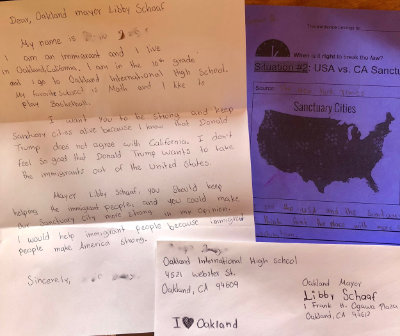 Dear, Oakland mayor Libby Schaaf
My name is
I am an immigrant and I live
in Oakland, California. I am in the 10th grade
and I go to Oakland International High School.
My favorite subject is Math and I like to
play Basketball.
I want you to be strong and keep
Sanctuary cities alive because I know that Donald
Trump does not agree with California. I don't
feel so good that Donald Trump wants to take
the immigrants out of the United States.
Mayor Libby Schaaf, you should keep
helping the immigrant people, and you could make
our Sanctuary City more strong. In my opinion,
I would help immigrant people because immigrant
people make America strong.
Sincerely,
This evidence belongs to:
When is it right to break the law?
Situation #2: USA vs. CA Sanctu
Source:
Sanctuary Cities
the USA and the
Oakland International High school
4521 Webster St.
Oakland, CA 94609
I ♥ Oakland
Oakland Mayor
Libby Schaaf
1 Frank H. Ogawa Plaza
Oakland, CA 94612